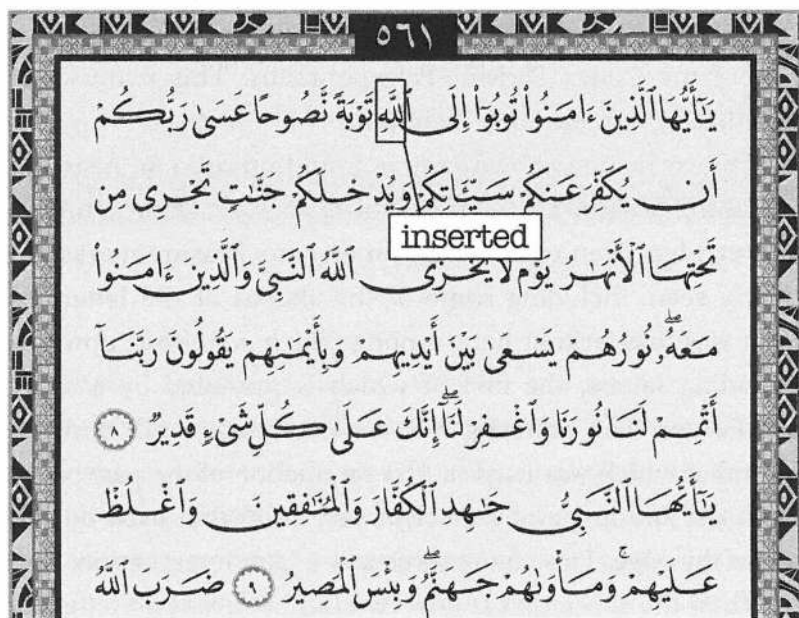 ٥٦١
يَٰٓأَيُّهَا ٱلَّذِينَ ءَامَنُوا۟ تُوبُوٓا۟ إِلَى ٱللَّهِ تَوْبَةً نَّصُوحًا عَسَىٰ رَبُّكُمْ
أَن يُكَفِّرَ عَنكُمْ سَيِّـَٔاتِكُمْ وَيُدْخِلَكُمْ جَنَّٰتٍ تَجْرِى مِن
inserted
تَحْتِهَا ٱلْأَنْهَٰرُ يَوْمَ لَا يُخْزِى ٱللَّهُ ٱلنَّبِىَّ وَٱلَّذِينَ ءَامَنُوا۟
مَعَهُۥ ۖ نُورُهُمْ يَسْعَىٰ بَيْنَ أَيْدِيهِمْ وَبِأَيْمَٰنِهِمْ يَقُولُونَ رَبَّنَآ
أَتْمِمْ لَنَا نُورَنَا وَٱغْفِرْ لَنَآ ۖ إِنَّكَ عَلَىٰ كُلِّ شَىْءٍ قَدِيرٌ ٨
يَٰٓأَيُّهَا ٱلنَّبِىُّ جَٰهِدِ ٱلْكُفَّارَ وَٱلْمُنَٰفِقِينَ وَٱغْلُظْ
عَلَيْهِمْ ۚ وَمَأْوَىٰهُمْ جَهَنَّمُ ۖ وَبِئْسَ ٱلْمَصِيرُ ٩ ضَرَبَ ٱللَّهُ